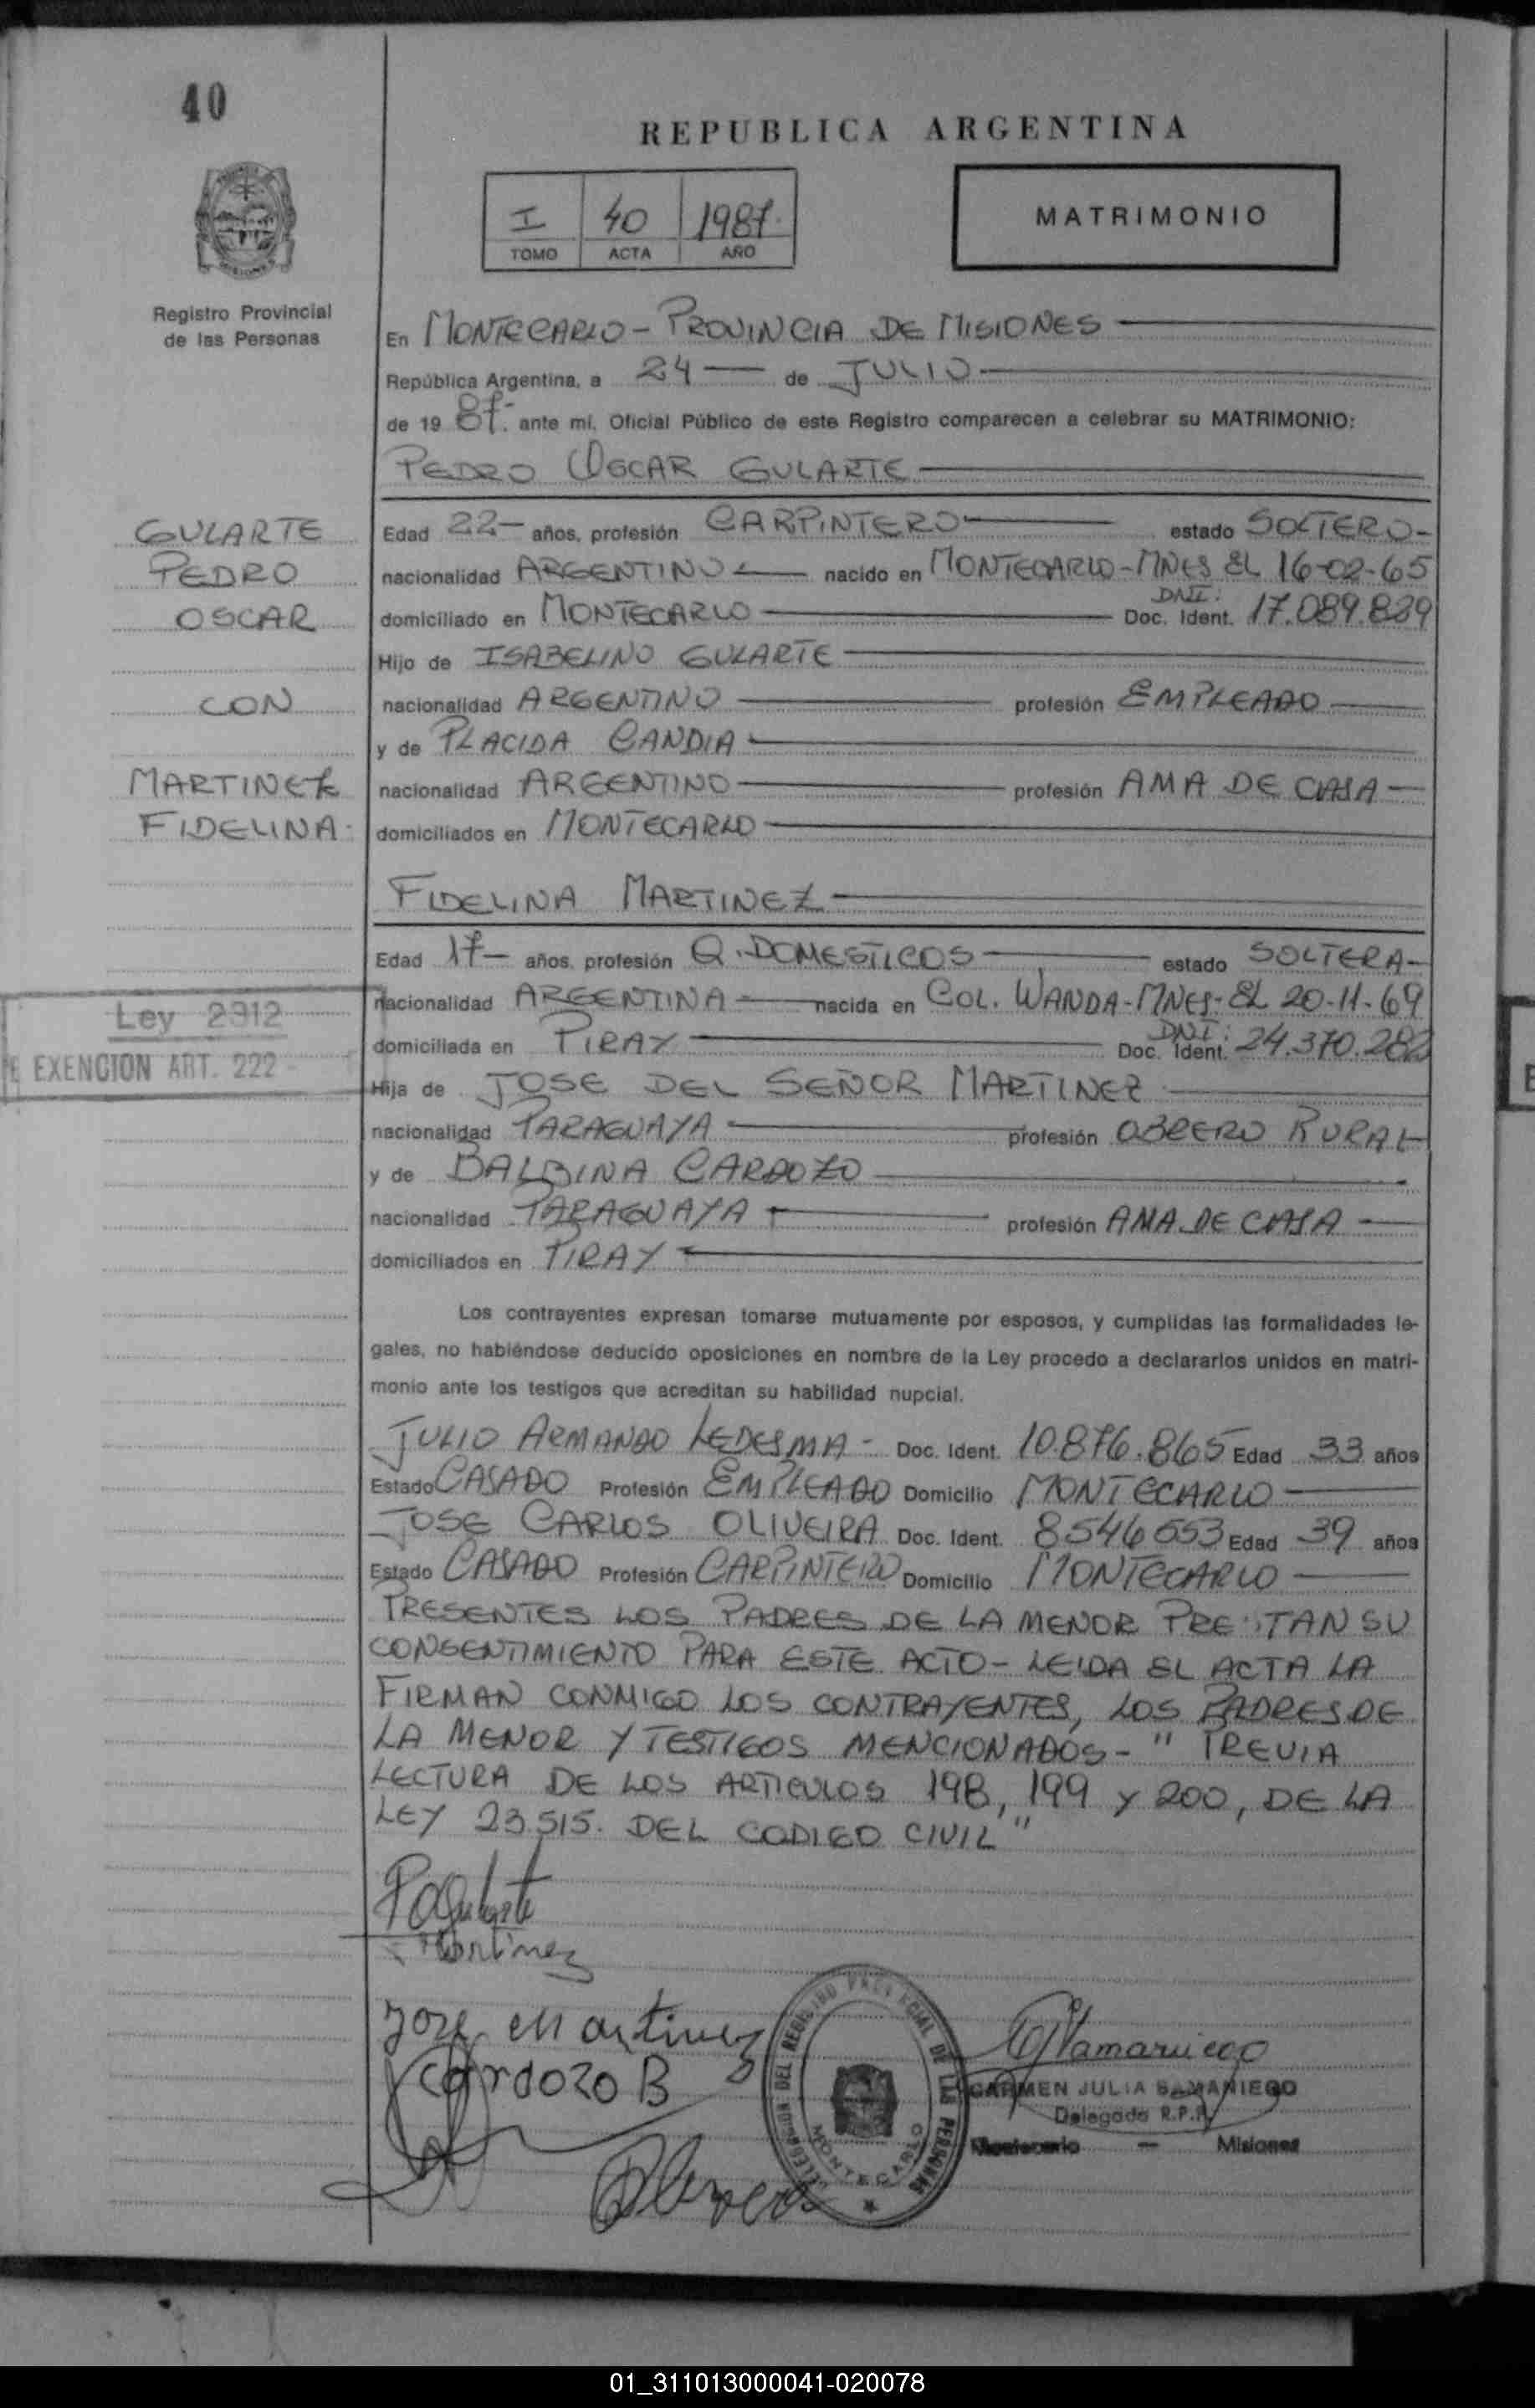 40
REPUBLICA ARGENTINA
I 40 1987.
TOMO ACTA AÑO
MATRIMONIO
Registro Provincial
de las Personas
En MONTECARLO - PROVINCIA DE MISIONES
República Argentina, a 24 de JULIO
de 19 87. ante mí, Oficial Público de este Registro comparecen a celebrar su MATRIMONIO:
PEDRO OSCAR GULARTE
GULARTE
PEDRO
OSCAR
CON
MARTINEZ
FIDELINA
Edad 22 años, profesión CARPINTERO estado SOLTERO
nacionalidad ARGENTINO nacido en MONTECARLO - MNES EL 16-02-65
domiciliado en MONTECARLO Doc. Ident. DNI: 17.089.839
Hijo de ISABELINO GULARTE
nacionalidad ARGENTINO profesión EMPLEADO
y de PLACIDA CANDIA
nacionalidad ARGENTINO profesión AMA DE CASA
domiciliados en MONTECARLO
FIDELINA MARTINEZ
Edad 17 años, profesión Q. DOMESTICOS estado SOLTERA
nacionalidad ARGENTINA nacida en COL. WANDA - MNES - EL 20-11-69
domiciliada en PIRAY Doc. Ident. DNI: 24.370.282
Ley 2912
EXENCION ART. 222
Hija de JOSE DEL SEÑOR MARTINEZ
nacionalidad PARAGUAYA profesión OBRERO RURAL
y de BALBINA CARDOZO
nacionalidad PARAGUAYA profesión AMA DE CASA
domiciliados en PIRAY
Los contrayentes expresan tomarse mutuamente por esposos, y cumplidas las formalidades le-
gales, no habiéndose deducido oposiciones en nombre de la Ley procedo a declararlos unidos en matri-
monio ante los testigos que acreditan su habilidad nupcial.
JULIO ARMANDO LEDESMA - Doc. Ident. 10.876.865 Edad 33 años
Estado CASADO Profesión EMPLEADO Domicilio MONTECARLO
JOSE CARLOS OLIVEIRA Doc. Ident. 8546553 Edad 39 años
Estado CASADO Profesión CARPINTERO Domicilio MONTECARLO
PRESENTES LOS PADRES DE LA MENOR PRESTAN SU
CONSENTIMIENTO PARA ESTE ACTO - LEIDA EL ACTA LA
FIRMAN CONMIGO LOS CONTRAYENTES, LOS PADRES DE
LA MENOR Y TESTIGOS MENCIONADOS - " PREVIA
LECTURA DE LOS ARTICULOS 198, 199 Y 200, DE LA
LEY 23.515. DEL CODIGO CIVIL "
Martinez
Jose Martinez
Cardozo B
DELEGACION DEL REGISTRO PROVINCIAL DE LAS PERSONAS
MONTECARLO
CARMEN JULIA SAMANIEGO
Delegada R.P.P.
Montecarlo - Misiones
01_311013000041-020078